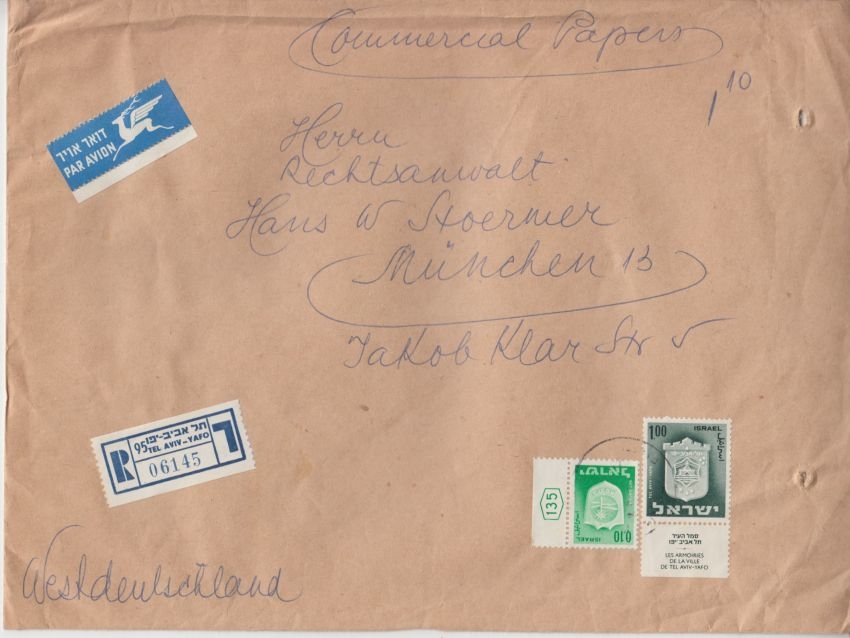 Commercial Papers
1 10
דואר אויר
PAR AVION
Herrn
Rechtsanwalt
Hans W Stoermer
München 13
Jakob Klar Str 5
R
תל אביב-יפו
95 TEL AVIV-YAFO
06145
ל
Westdeutschland
135
ישראל
ISRAEL
0.10
1.00
ISRAEL
TEL AVIV-YAFO
ישראל
סמל העיר
תל אביב-יפו
LES ARMOIRIES
DE LA VILLE
DE TEL AVIV-YAFO